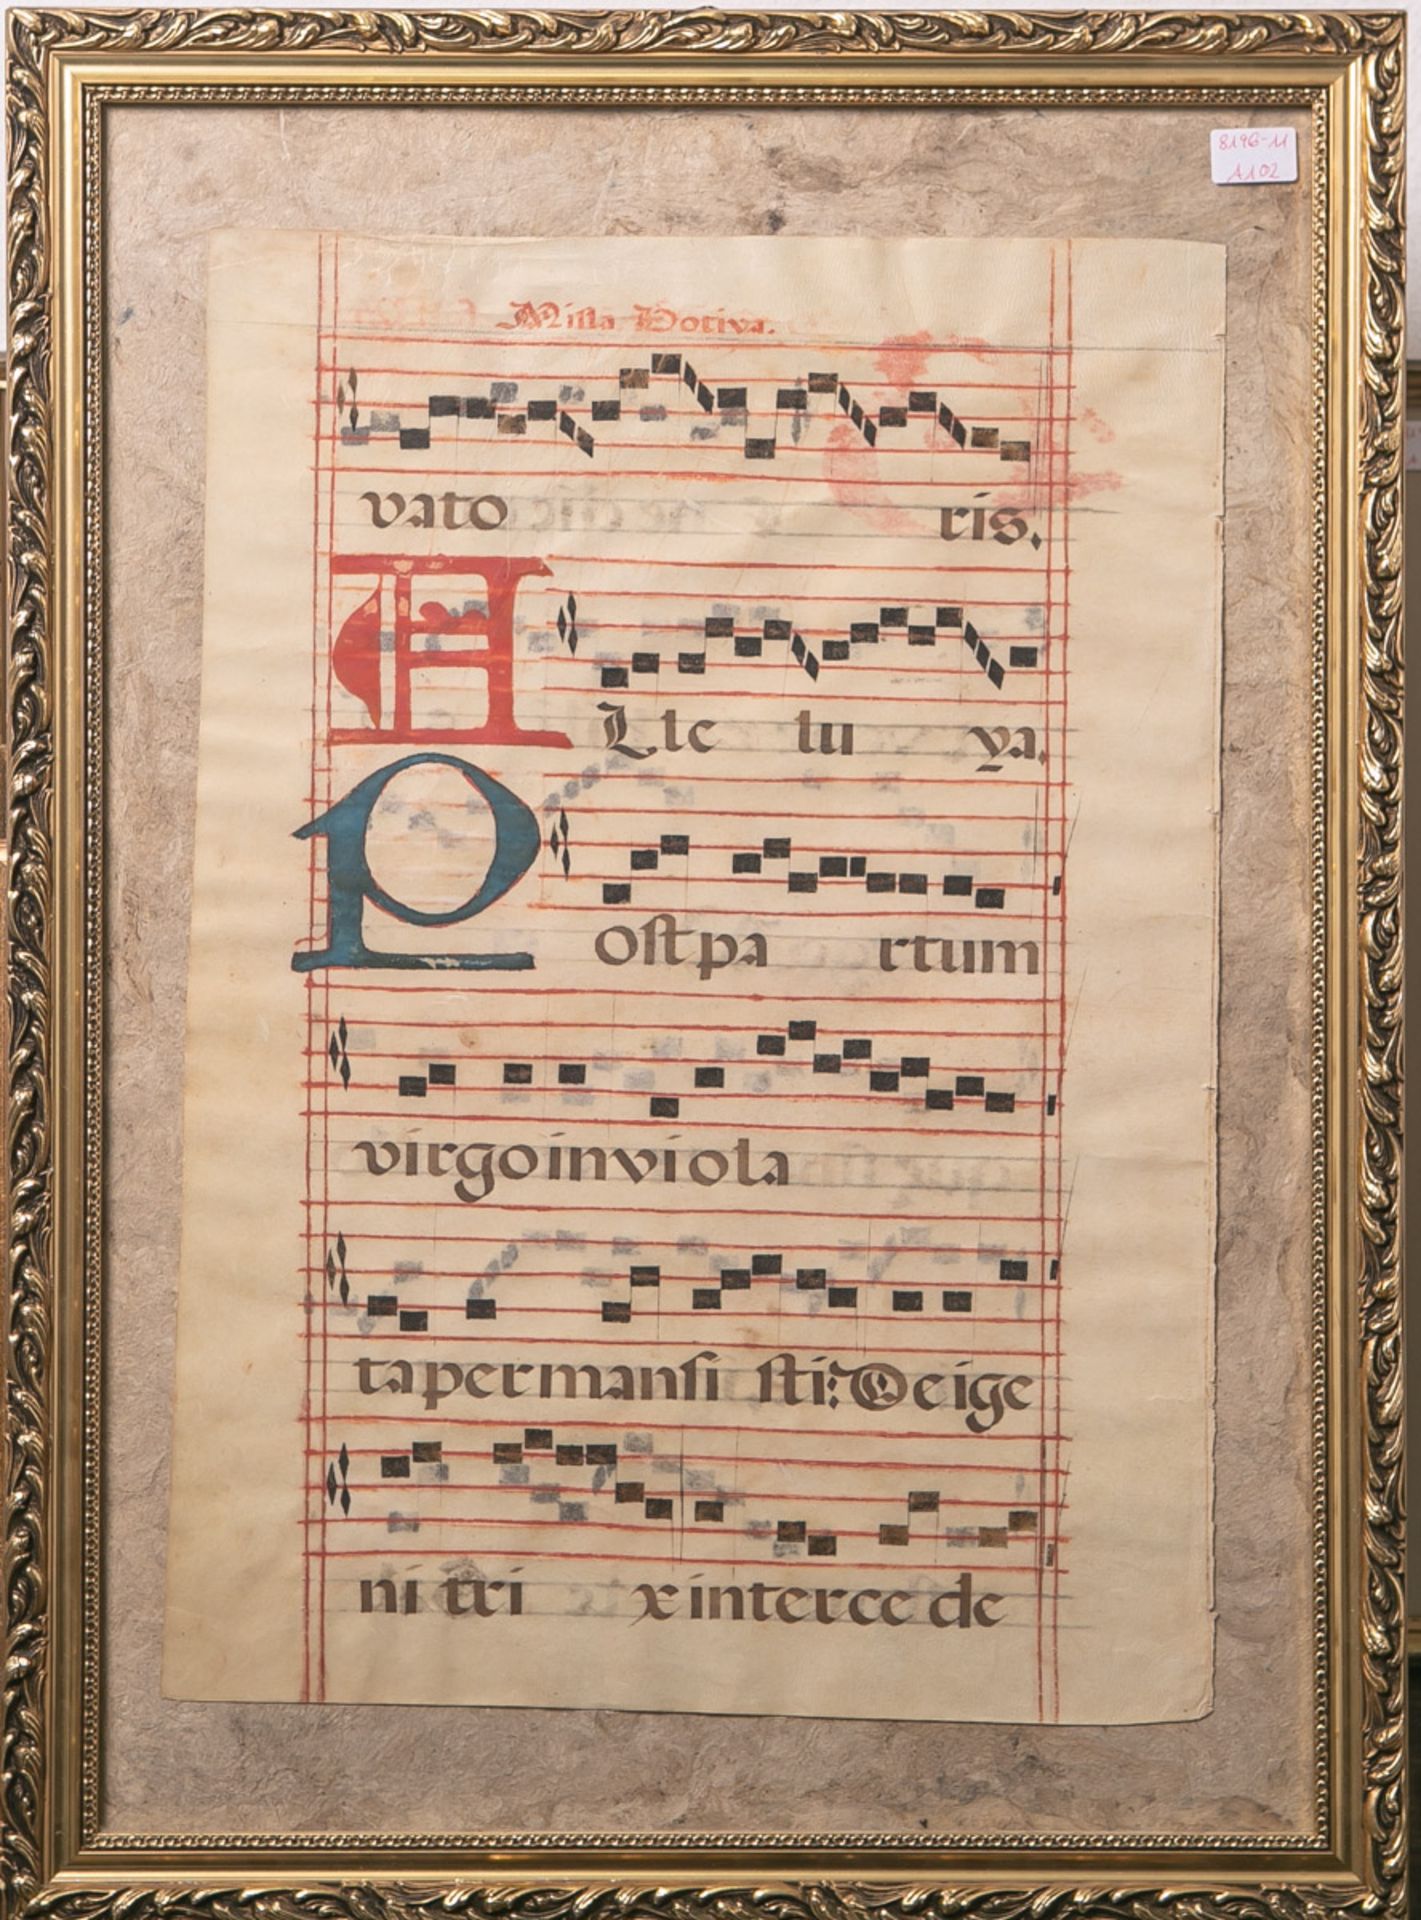 8196-11
A102
Missa Votiva.
vato ris.
A Lle lu ya.
P ost pa rtum
virgo inviola
ta permansi sti: Dei ge
ni tri x interce de